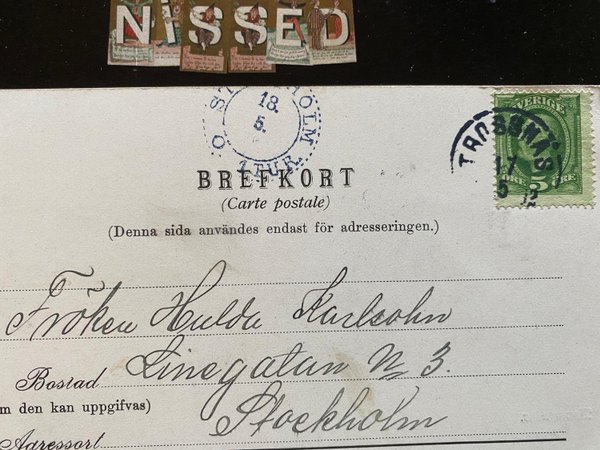 NISSED
STOCKHOLM
18.
5.
1 TUR.
SVERIGE
TROSSNÄS
17
5
BREFKORT
(Carte postale)
(Denna sida användes endast för adresseringen.)
Fröken Hulda Karlsohn
Bostad Linnegatan N 3.
m den kan uppgifvas)
Stockholm
Adressort